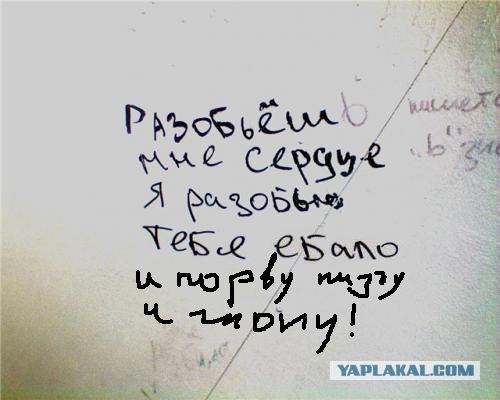 РАЗОБЬЁШЬ пишетс
мне сердце "Ь" зн
Я разобью
тебе ебало
и порву пизду
и
YAPLAKAL.COM